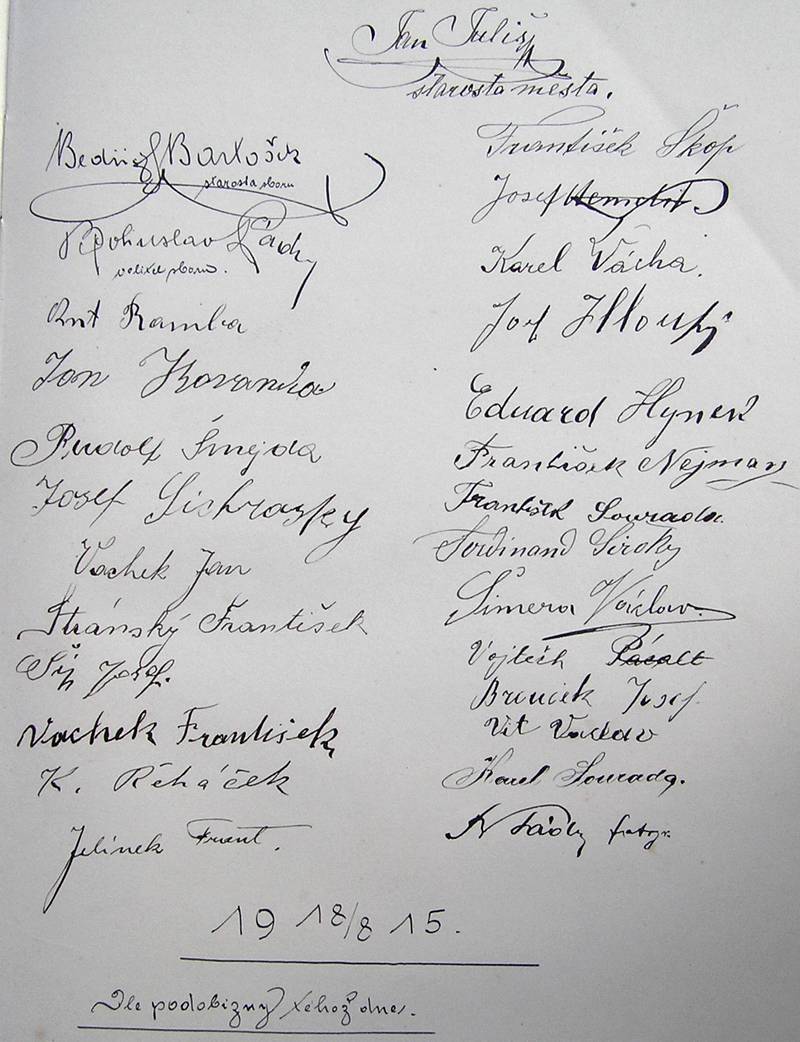 Jan Tuliš
starosta města.
Bedřich Bartošek
starosta sboru
Bohuslav Fády
velitel sboru.
Ant Ramba
Jan Kovanda
Rudolf Šmejda
Josef Sichrovský
Vachek Jan
Stránský František
Šíp Josef.
Vachek František
K. Řeháček
Jelínek Frant.
František Škop
Josef
Karel Vácha.
Josef Hloupý
Eduard Hynek
František Nejman
František Sourada
Ferdinand Široky
Šimera Václav.
Vojtěch Pacalt
Brouček Josef
Vít Vaclav
Karel Sourada.
Fády fotogr.
19 18/8 15.
Dle podobizny téhož dne.